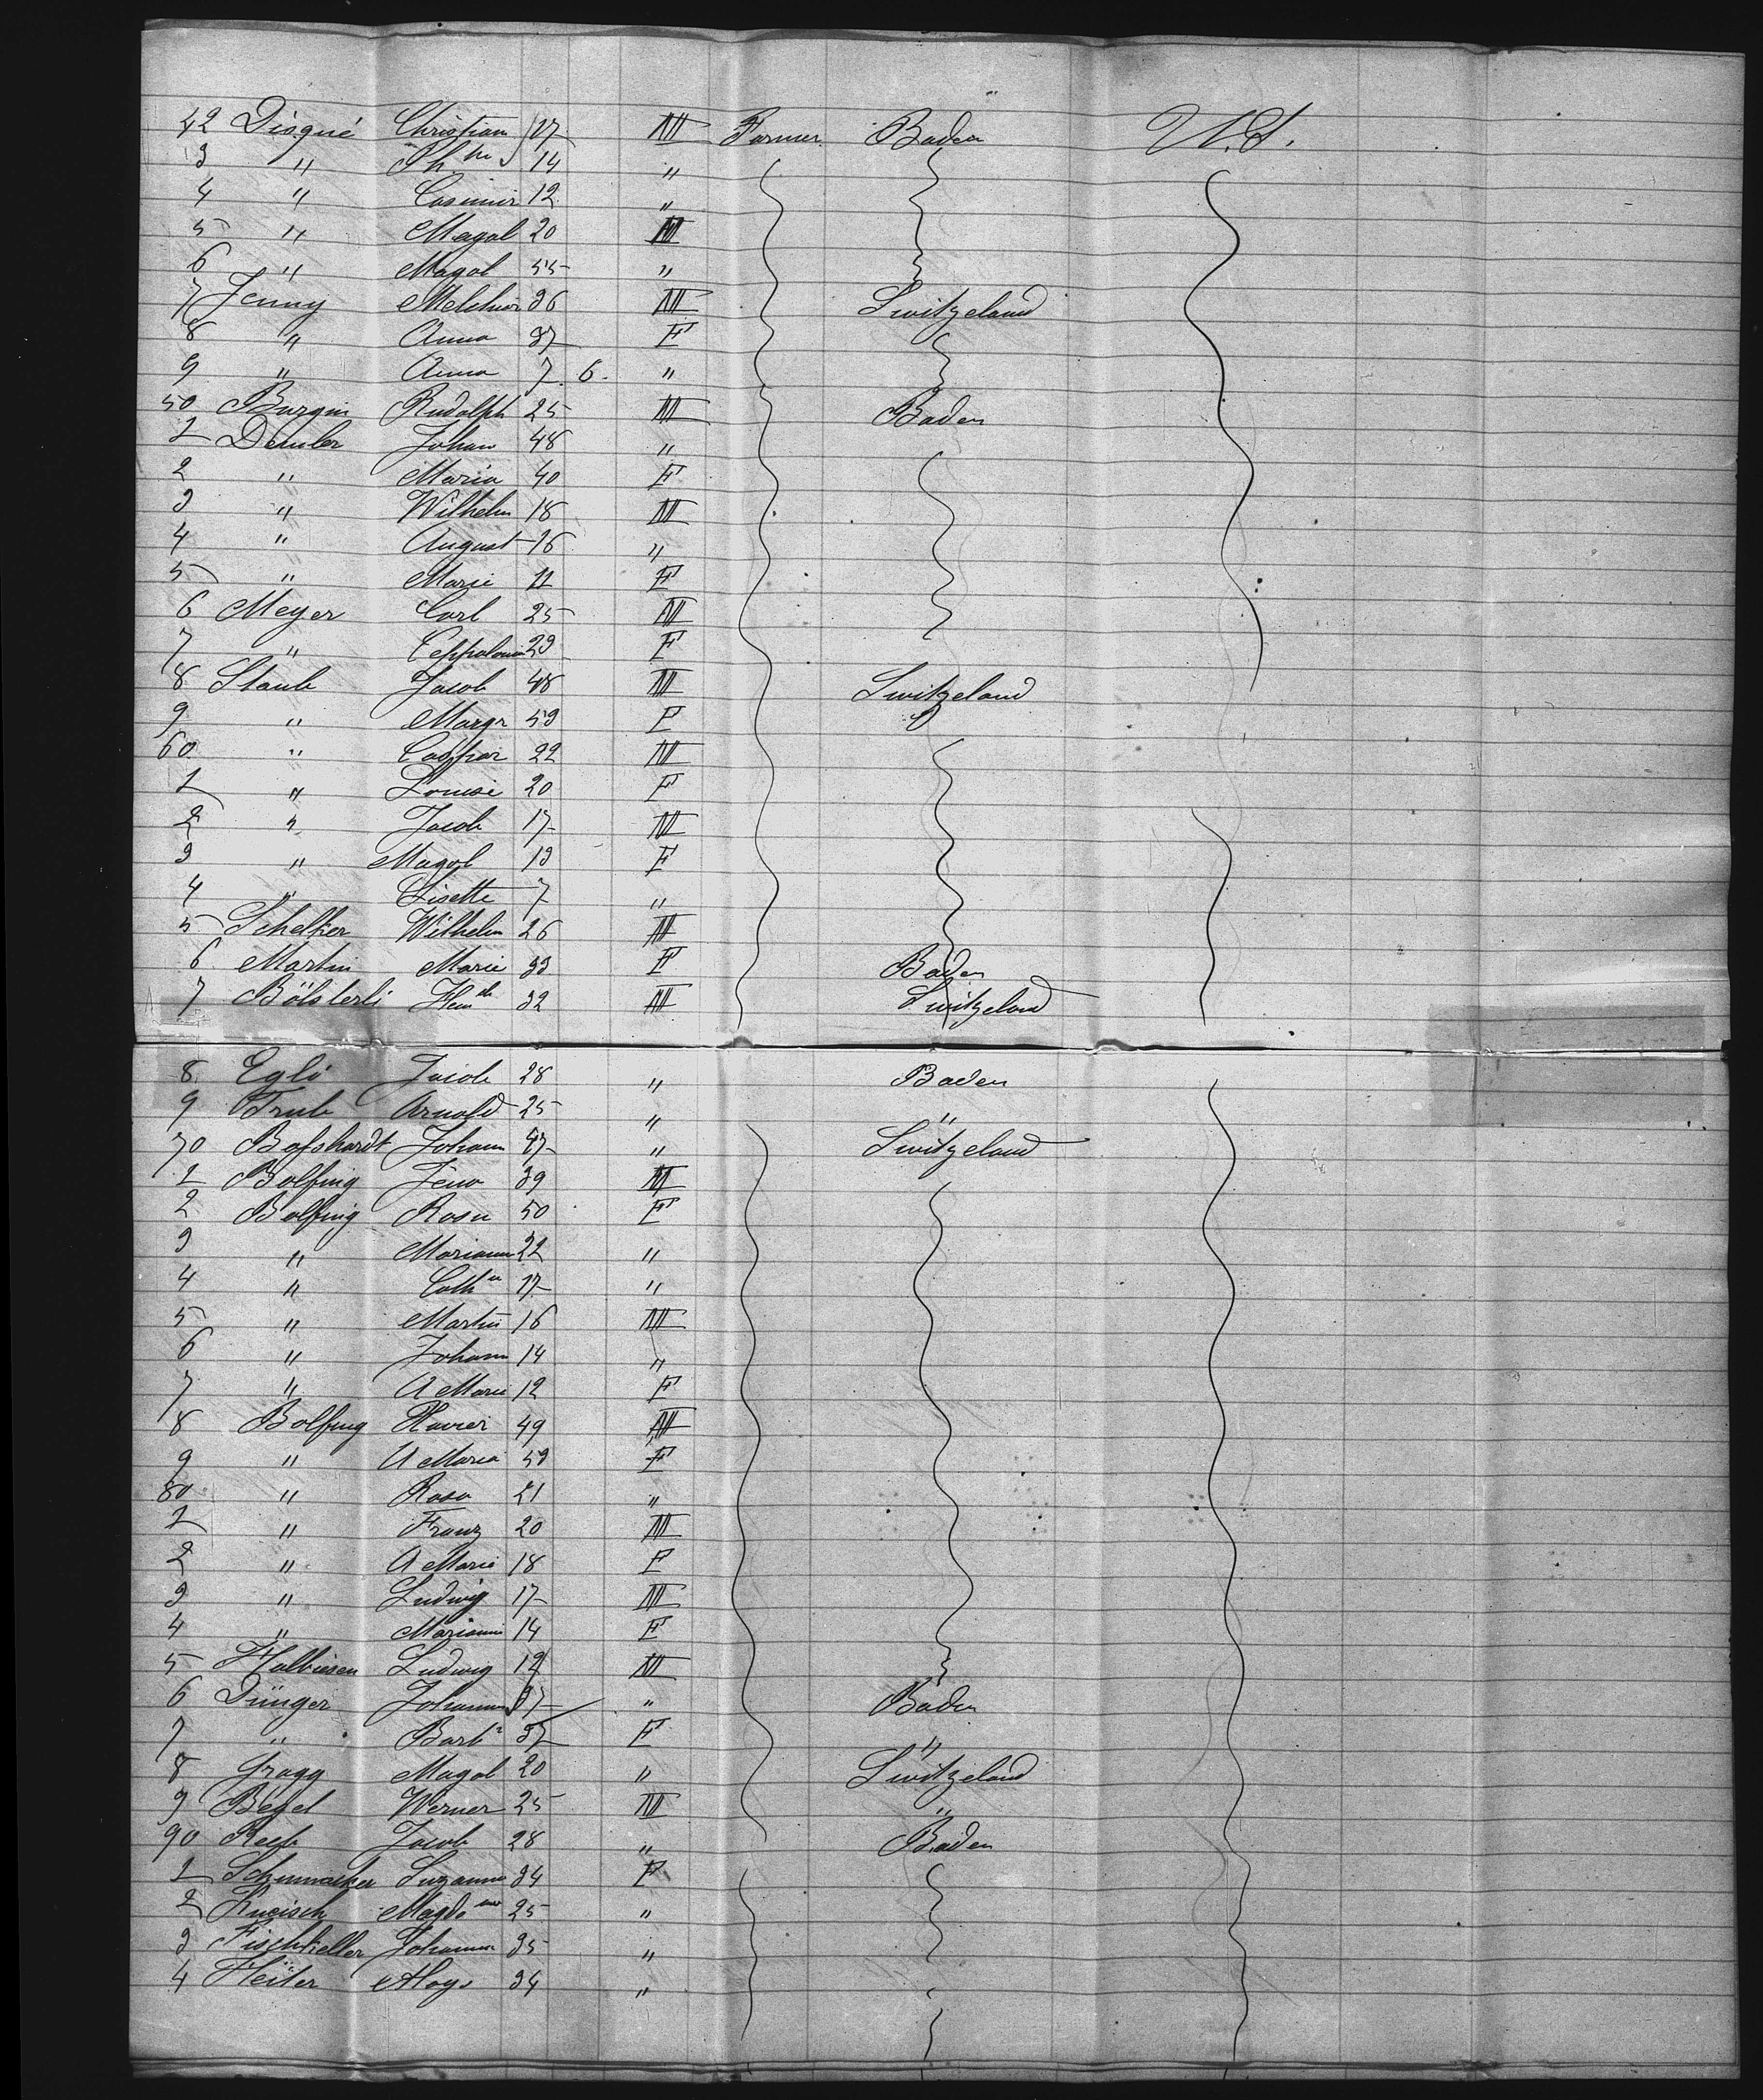 42 Disqué Christian 17 M Farmer Baden U.S.
3 " Phpe 14 "
4 " Casimir 12 "
5 " Magd 20
6 " Magd 55 "
7 Jenny Melchior 36 M Switzeland
8 " Anna 37 F
9 " Anna 7. 6. "
50 Burgin Rudolph 25 M Baden
1 Demler Johan 48 "
2 " Maria 40 F
3 " Wilhelm 18 M
4 " August 16 "
5 " Marie 11 F
6 Meyer Carl 25 M
7 " 23 F
8 Staub Jacob 48 M Switzeland
9 " Margr 53 F "
60 " Caspar 22 M
1 " Louise 20 F
2 " Jacob 17 M
3 " Magd 13 F
4 " Lisette 7 "
5 Schelker Wilhelm 26 M
6 Martin Marie 33 F Baden
7 Bölsterli Heinch 32 M Switzeland
8 Egli Jacob 28 " Baden
9 Trub Arnold 25 " "
70 Bosshardt Johann 47 " Switzeland
1 Bolfing 39 M
2 Bolfing Rosa 50 F
3 " Mariann 22 "
4 " Catha 17 "
5 " Martin 16 M
6 " Johann 14 "
7 " A Marie 12 F
8 Bolfing Xavier 49 M
9 " A Maria 53 F
80 " Rosa 21 "
1 " Franz 20 M
2 " A Marie 18 F
3 " Ludwig 17 M
4 " Mariann 14 F
5 Halbiesen Ludwig 19 M
6 Dünger Johannes 37 " Baden
7 " Barba 37 F "
8 Gragg Magd 20 " Switzeland
9 Begel Werner 25 M "
90 Reeb Jacob 28 " Baden
1 Schumacker Suzanna 34 F
2 Magdana 25 "
3 Fischkeller Johanna 35 "
4 Heiter Aloys 34 "